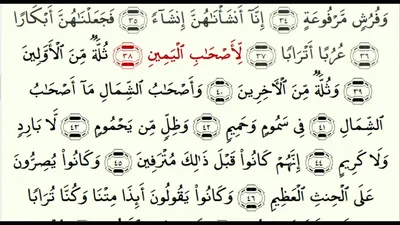 وَفُرُشٍ مَّرْفُوعَةٍ ٣٤ إِنَّآ أَنشَأْنَـٰهُنَّ إِنشَآءً ٣٥ فَجَعَلْنَـٰهُنَّ أَبْكَارًا
٣٦ عُرُبًا أَتْرَابًا ٣٧ لِّأَصْحَـٰبِ ٱلْيَمِينِ ٣٨ ثُلَّةٌ مِّنَ ٱلْأَوَّلِينَ
٣٩ وَثُلَّةٌ مِّنَ ٱلْـَٔاخِرِينَ ٤٠ وَأَصْحَـٰبُ ٱلشِّمَالِ مَآ أَصْحَـٰبُ
ٱلشِّمَالِ ٤١ فِى سَمُومٍ وَحَمِيمٍ ٤٢ وَظِلٍّ مِّن يَحْمُومٍ ٤٣ لَّا بَارِدٍ
وَلَا كَرِيمٍ ٤٤ إِنَّهُمْ كَانُوا۟ قَبْلَ ذَٰلِكَ مُتْرَفِينَ ٤٥ وَكَانُوا۟ يُصِرُّونَ
عَلَى ٱلْحِنثِ ٱلْعَظِيمِ ٤٦ وَكَانُوا۟ يَقُولُونَ أَئِذَا مِتْنَا وَكُنَّا تُرَابًا